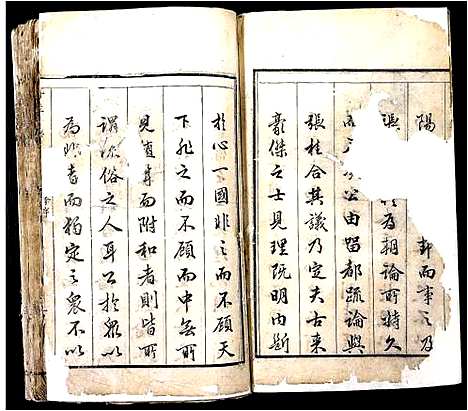 陽
郭而峯之及
濵以為朝論所持久
公由留都疏論與
張桂合其議乃定夫古來
豪傑之士見理既明內斷
於心一國非之而不顧天
下非之而不顧而中無所
見隨聲而附和者則皆所
謂流俗之人耳公於眾以
為非者而獨定之眾不以